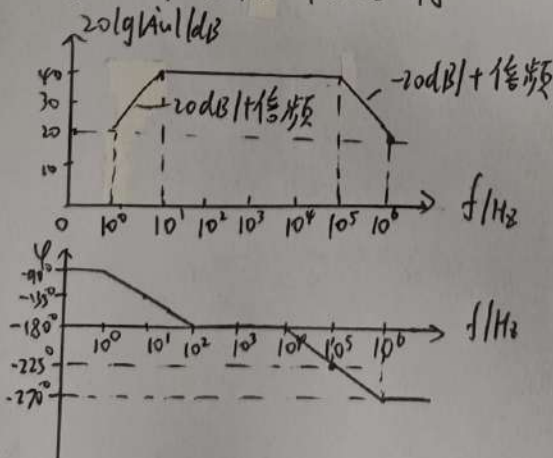 20lg|Au|/dB
40
30
20
10
20dB/十倍频
-20dB/十倍频
0 10⁰ 10¹ 10² 10³ 10⁴ 10⁵ 10⁶ f/Hz
φ
-90°
-135°
-180°
10⁰ 10¹ 10² 10³ 10⁴ 10⁵ 10⁶ f/Hz
-225°
-270°